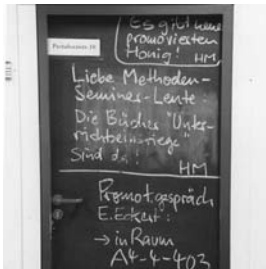 Es gibt neue
promovierten
Honig! HM
Liebe Methoden-
Seminar-Leute
Die Bücher "Unter-
sind da!
HM
Promot.gespräch
E. Eckert:
→ in Raum
A4-4-403